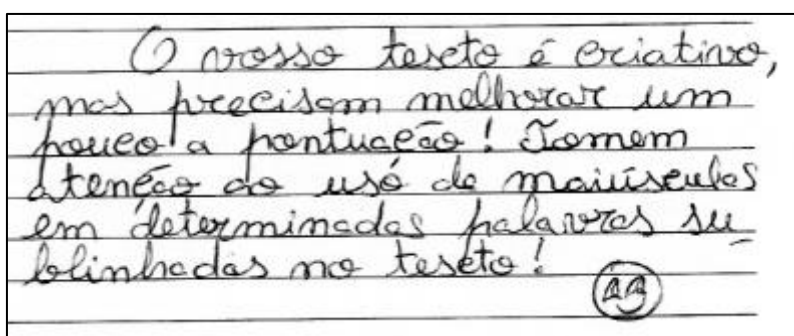 O vosso texto é criativo,
mas precisam melhorar um
pouco a pontuação! Tomem
atenção ao uso de maiúsculas
em determinadas palavras su
blinhadas no texto!